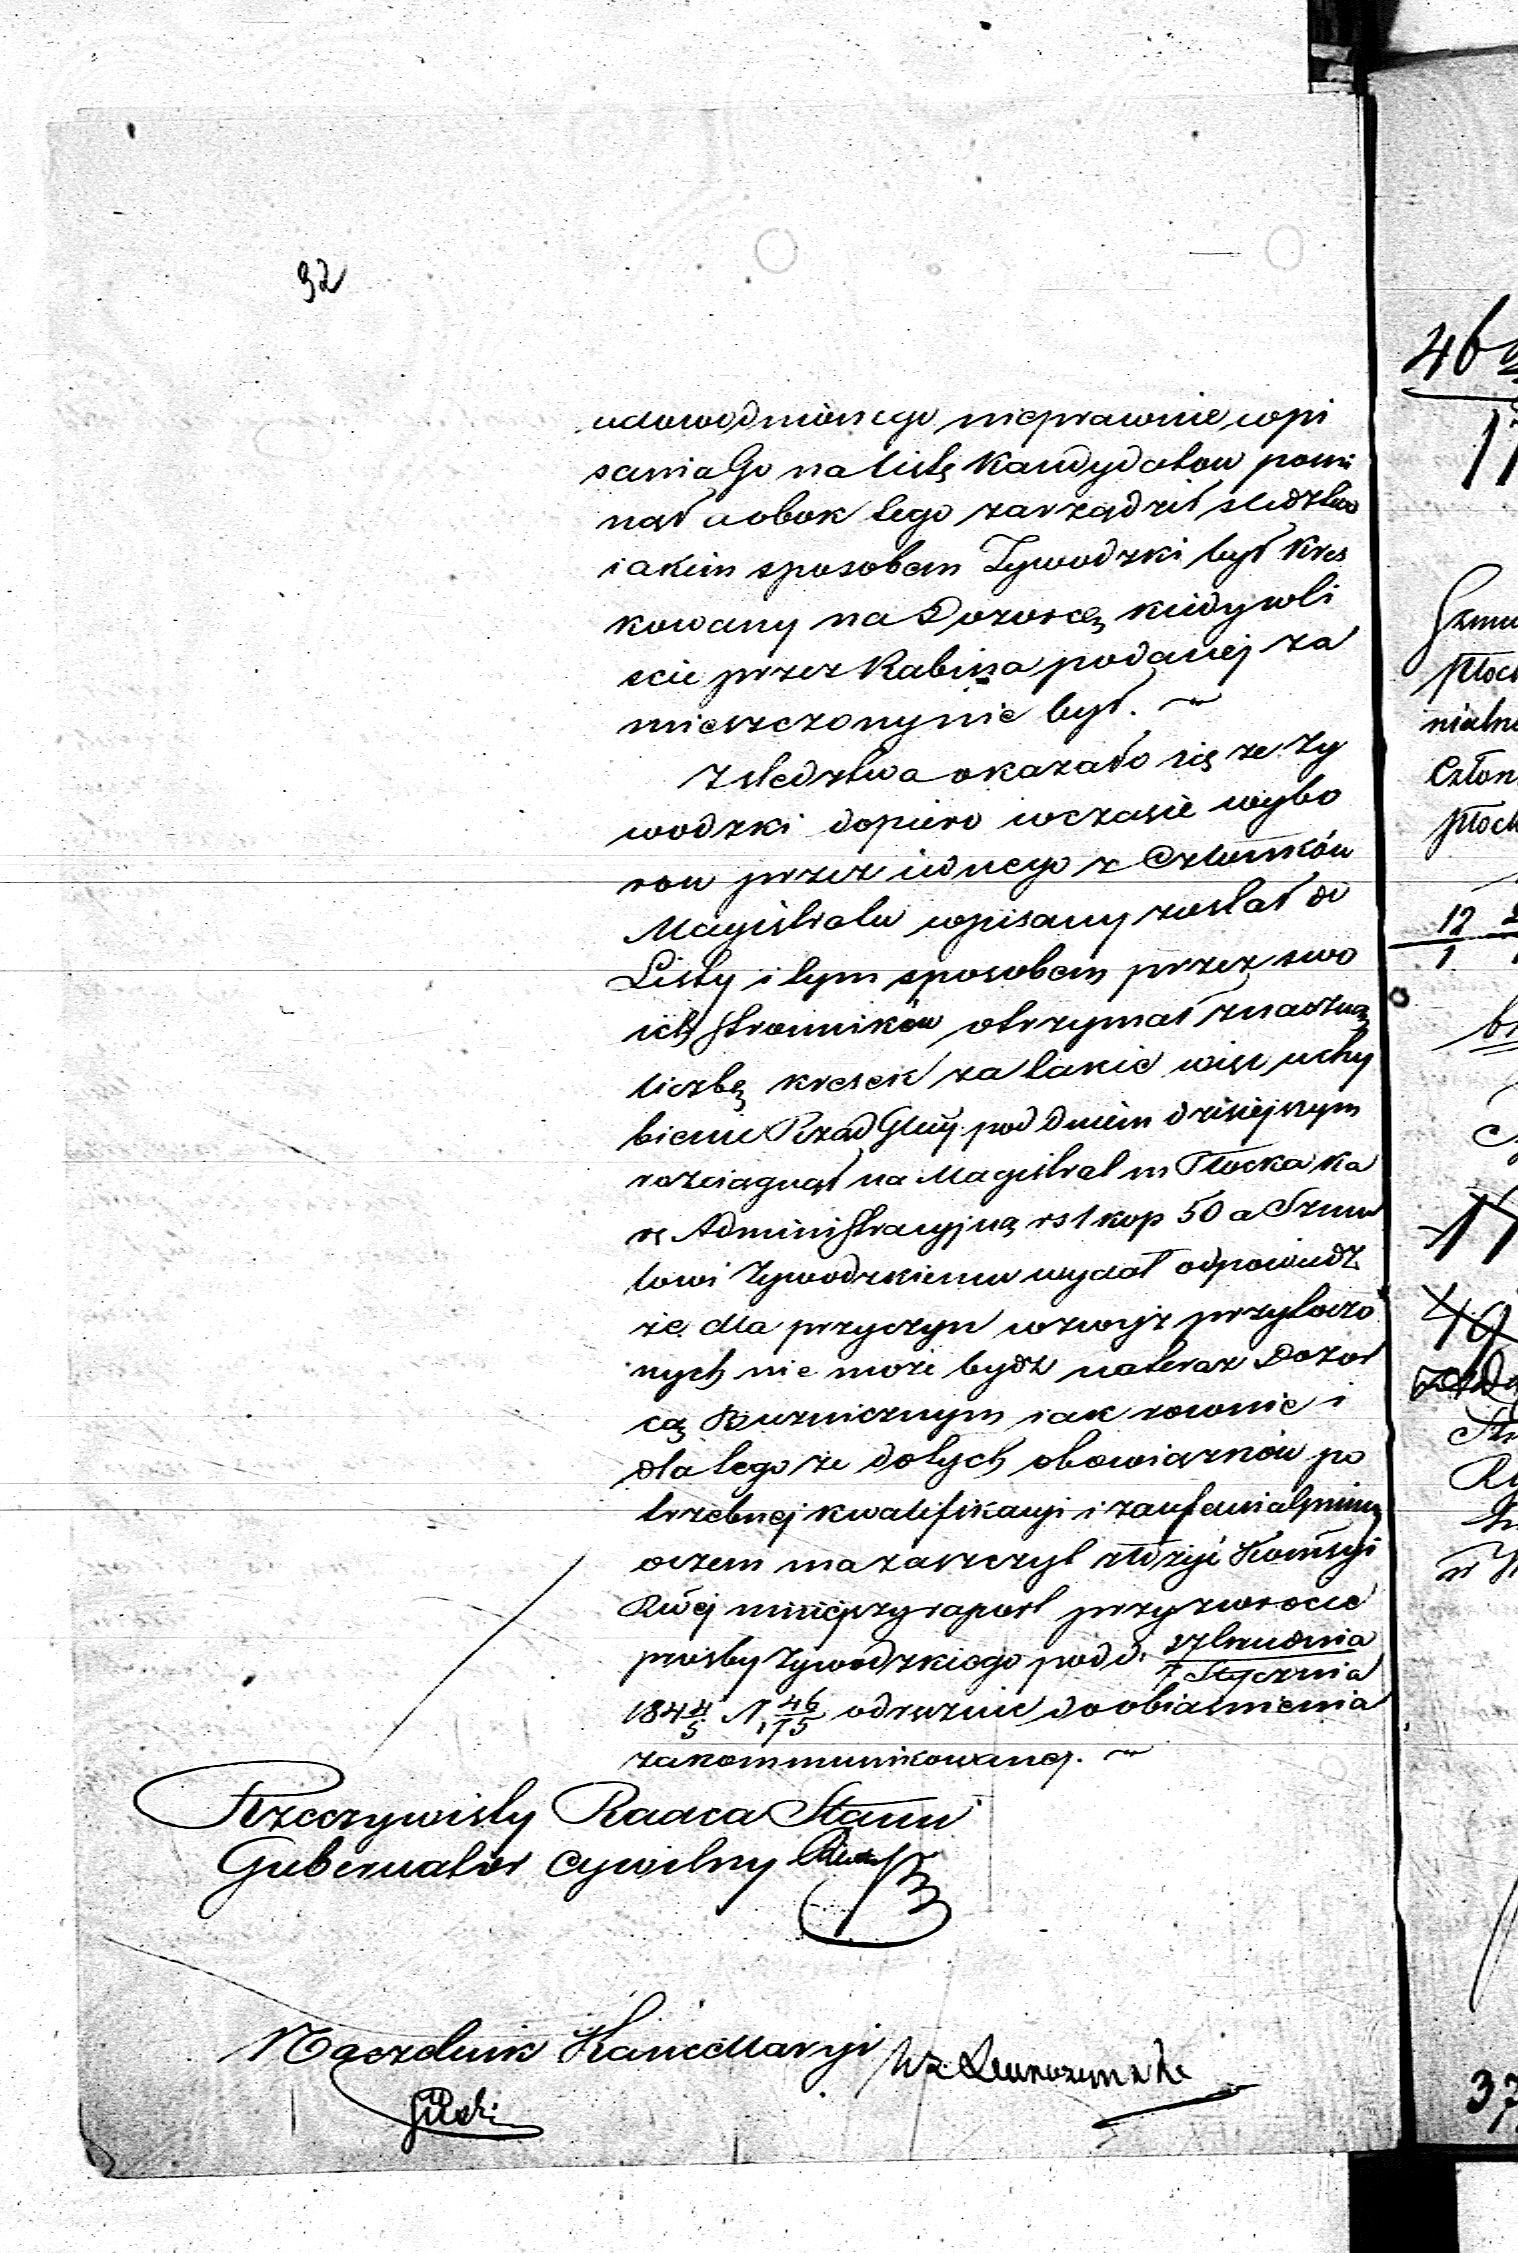 92
udowodnionego nieprawnie wpi
sania Go na listę Kandydatow pomi
nął a obok tego zarządził sledztwo
iakim sposobem Zywodzki był kres
kowany na Dozorcę kiedy w li
scie przez Rabina podanej za
mieszczony nie był. ~
Z sledztwa okazało się ze Zy
wodzki dopiero w czasie wybo
row przez iednego z Członków
Magistratu wpisany został do
Listy i tym sposobem przez swo
ich stronników otrzymał znaczną
liczbę kresek za takie więc uchy
bienie Rząd Gluy pod dniem dzisiejszym
rozciągnął na Magistrat m Płocka ka
rę Administracyjną rs 1 kop 50 a Szmu
lowi Zywodzkiemu wydał odpowiedz
że dla przyczyn wzwyż przytoczo
nych nie może bydz na teraz Dozor
cą Bużnicznym iak rownie i
dla tego że do tych obowiązków po
trzebnej kwalifikacyi i zaufania gminy
o czem ma zaszczyt złożyć Kommssyi
Rwej niniejszy raport przy zwrocie
prosby Zywodzkiego pod d. 27 Grudnia
7 Stycznia
184 4/5 N 46/175 odręcznie do obiasnienia
zakommunikowanej. ~
Rzeczywisty Radca Stanu
Gubernator Cywilny
Naczelnik Kancellaryi
46
17
Szmu
Płoc
nialn
Człon
Płock
12
1
br
17
49
37